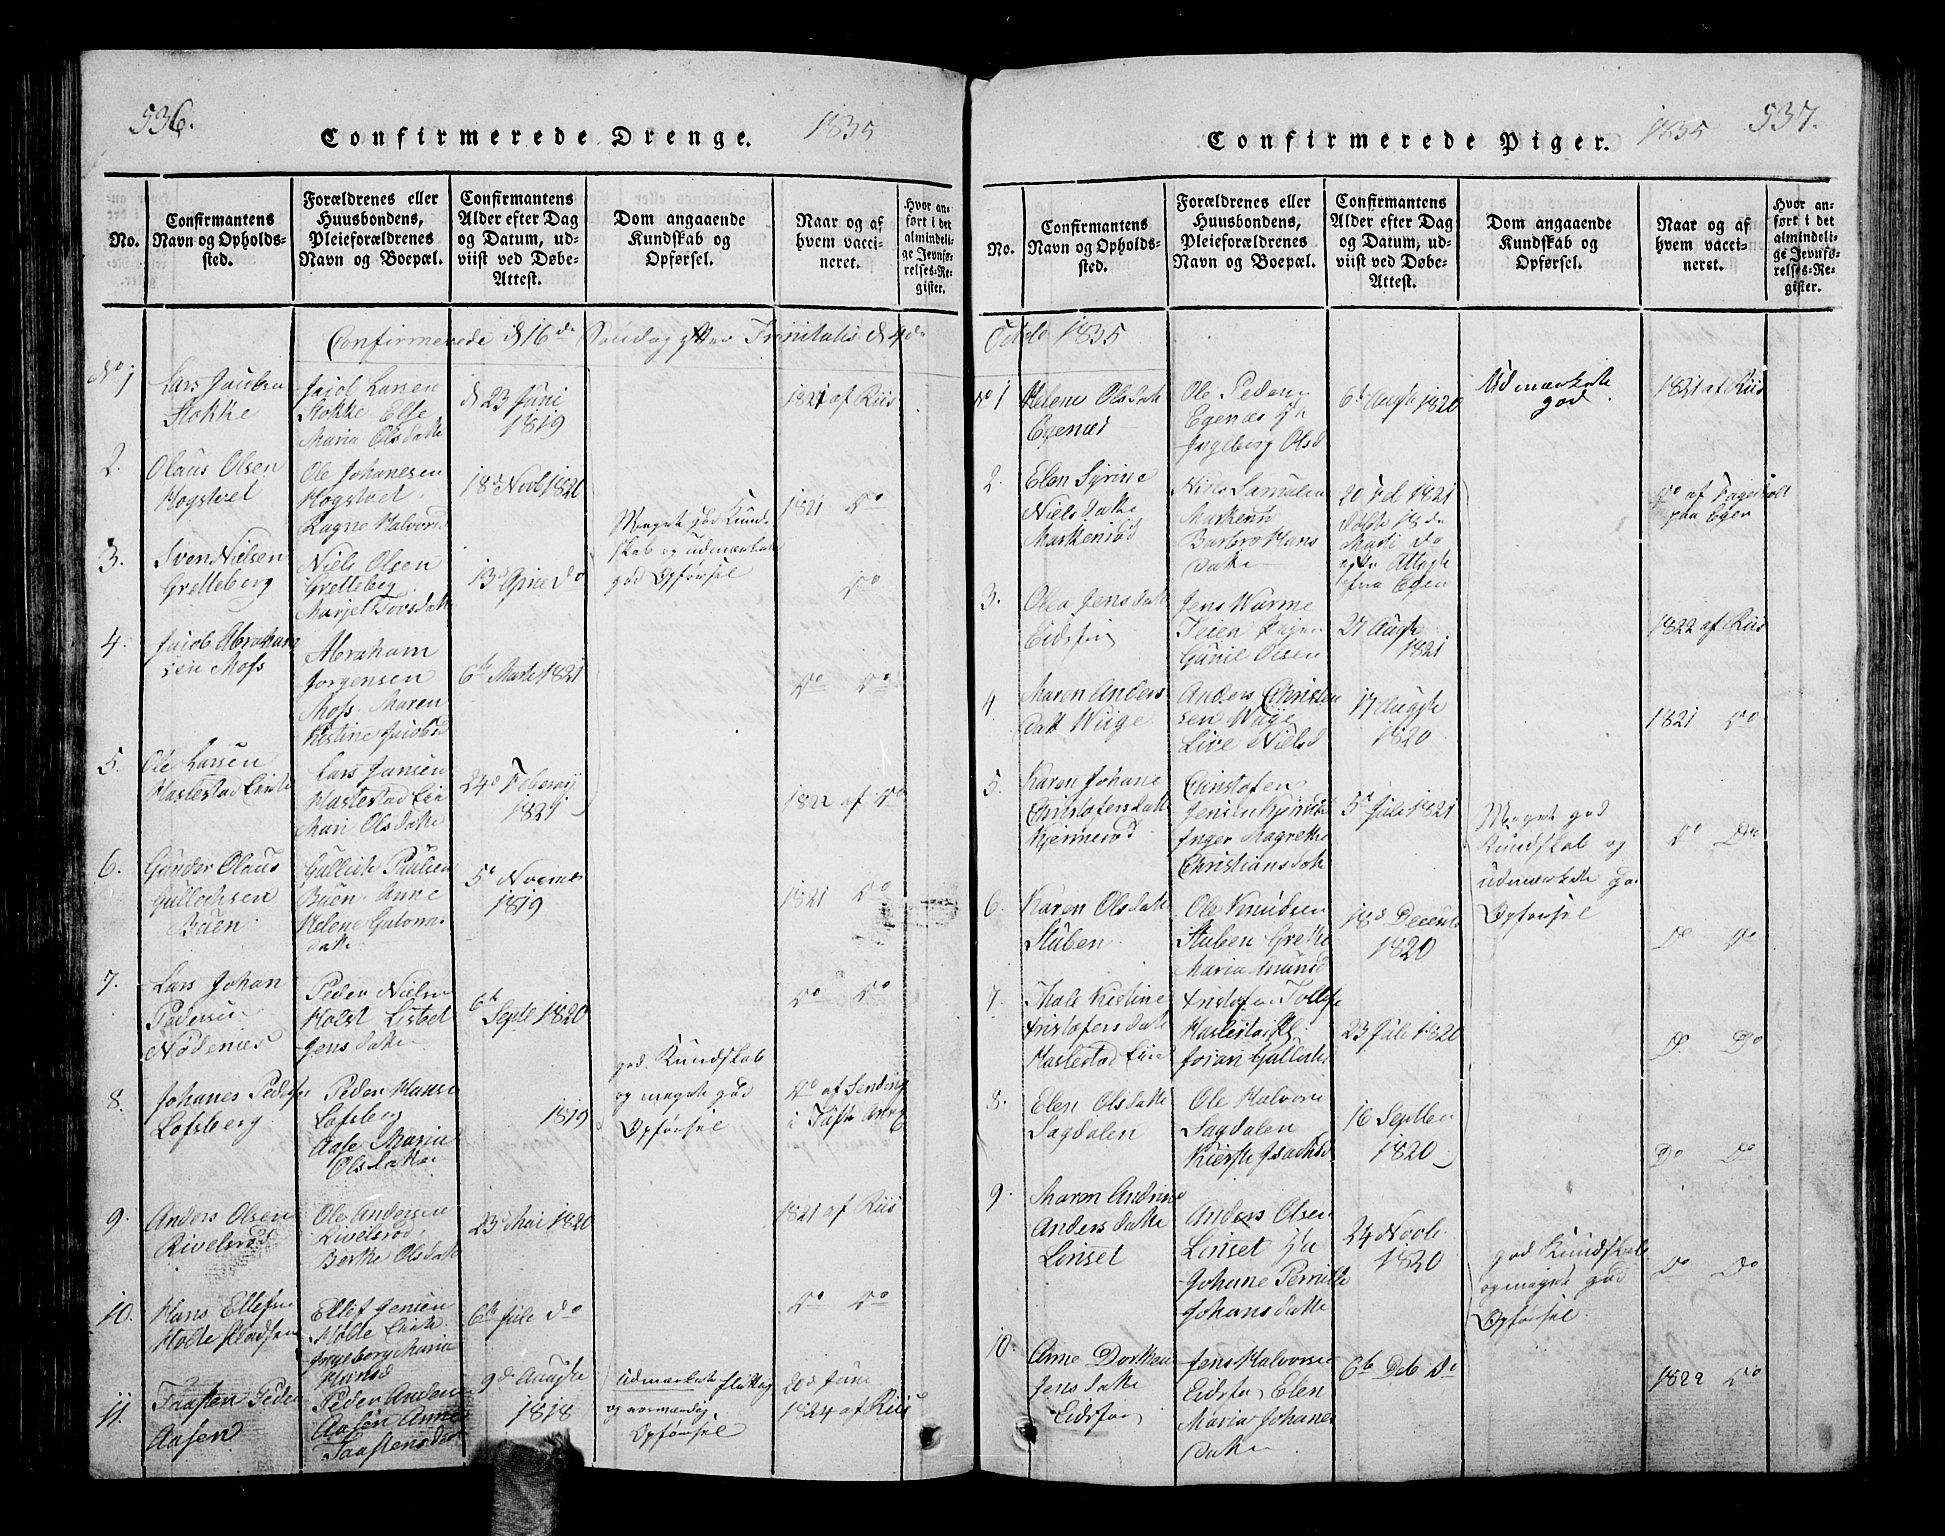 536.
Confirmerede Drenge.
1835
No.
Confirmantens
Navn og Opholds-
sted.
Forældrenes eller
Huusbondens,
Pleieforældrenes
Navn og Boepæl.
Confirmantens
Alder efter Dag
og Datum, ud-
viist ved Døbe-
Attest.
Dom angaaende
Kundskab og
Opførsel.
Naar og af
hvem vacci-
neret.
Hvor an-
ført i det
almindeli-
ge Jevnfø-
relses-Re-
gister.
Confirmerede d 16de Søndag efter Trinitatis d 4de
No 1
Lars Jacobsen
Stokke
Jacob Larsen
Stokke Else
Maria Olsdatte
d 23 Juni
1819
1821 af Riis
2.
Olaus Olsen
Hogstvet
Ole Johanesen
Hogstvet
Ragne Halvorsd
18d Novb 1820
1821 Do
Meget god Kund-
skab og udmærket
god Opførsel
3.
Sven Nielsen
Gretteberg
Niels Olsen
Gretteberg
Marje Tovsdatte
Do
4.
Jacob Abraham
sen Moss
Abraham
Jørgensen
Moss Maren
Kistine Jacobsd
6te Marti 1821
Do Do
5.
Ole Larsen
Haslestad
Lars Jansen
Haslestad
Mari Olsdatte
24d Febru
1821
1822 af Do
6.
Gunder Olaus
Gullichsen
Buen
Gullich Paulsen
Buen Anne
Helene Gulom-
datte
5e Novemb
1819
1821 Do
7.
Lars Johan
Pedersen
Nødenes
Peder Nielsen
Holst Lisbet
Jensdatte
6te
Septb 1820
Do Do
god Kundskab
og meget god
Opførsel
8.
Johanes Peders
Lofsberg
Peder Hanse
Lofsberg
Aase Maria
Olsdatte
1819
Do af
9.
Anders Olsen
Rivelsrød
Ole Andersen
Rivelsrød
Berthe Olsdatte
23d Mai 1820
1821 af Riis
10.
Hans Ellefsen
Holte
Ellif Jensen
Holte
Ingeborg Maria
Hansd
6te Juli do
Do Do
11.
Taasten Peder
Aasen
Peder Anders
Aasen Anne
Taastensdat
9d Augste
1818
udmærket
Opførsel
20d Juni
1824 af Riis
537.
Confirmerede Piger.
1835
No.
Confirmantens
Navn og Opholds-
sted.
Forældrenes eller
Huusbondens,
Pleieforældrenes
Navn og Boepæl.
Confirmantens
Alder efter Dag
og Datum, ud-
viist ved Døbe-
Attest.
Dom angaaende
Kundskab og
Opførsel.
Naar og af
hvem vacci-
neret.
Hvor an-
ført i det
almindeli-
ge Jevnfø-
relses-Re-
gister.
Octob 1835
No 1
Helene Olsdatt
Egenæs
Ole Peders
Egenæs
Ingeborg Olsd
6te Augst 1820
Udmærket
god
1821 af Riis
2.
Elen Syrine
Nielsdatte
Markerrød
Niels Samulsen
Markerrø
Barbro Hans
datte
20 Feb 1821
Døbt 18de
Marti do
efter Attest
fra Eger
Do af Fagerholt
paa Eger
3.
Olea Jensdatt
Eidsfos
Jens Warme
Teien
Gunil Olsen
27 Augste
1821
1822 af Riis
4.
Maren Anders
datt Wiige
Anders Christen
sen Wiige
Live Nielsd
17 Augste
1820
1821 Do
5.
Karen Johane
Christofersdatte
Kjennerød
Christofen
Jensen
Inger Magrethe
Christiansdatt
5te Juli 1821
Meget god
Kundskab og
udmærket god
Opførsel
Do Do
6.
Karen Olsdatte
Stuben
Ole Knudsen
Stuben Grethe
Maria Amunsd
18d Decemb
1820
Do Do
7.
Thale Kistine
Kristofersdatte
Haslestad
Kristofer Tollefs
Haslestad
Joran Gullichs
23 Juli 1820
Do Do
8.
Elen Olsdatte
Sagdalen
Ole Halvorse
Sagdalen
Kierste Isachsd
16 Septbe
1820
Do Do
9.
Maren Andrine
Andersdatte
Linset
Anders Olsen
Linset
Johane Pernille
Johansdatte
24 Novb
1820
god Kundskab
og meget god
Opførsel
Do Do
10.
Anne Dorthea
Jensdatte
Eidsfos
Jens Halvorse
Eidsfos Elen
Maria Johanes
datte
6te Deb Do
1822 Do